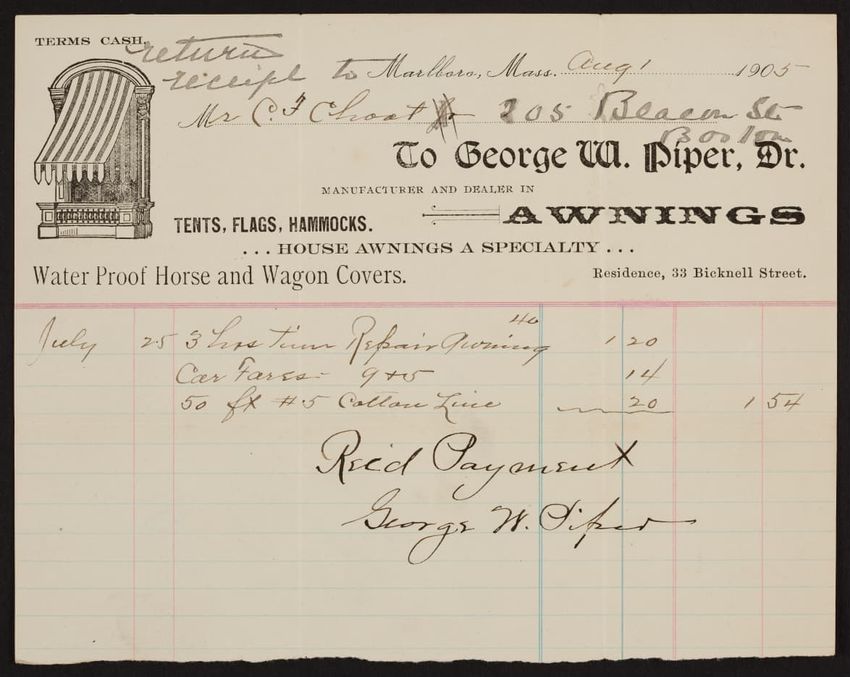 TERMS CASH.
return
receipt to Marlboro, Mass. Aug 1 1905
Mr C. F Choat Jr 205 Beacon St
Boston
To George W. Piper, Dr.
MANUFACTURER AND DEALER IN
TENTS, FLAGS, HAMMOCKS. AWNINGS
... HOUSE AWNINGS A SPECIALTY ...
Water Proof Horse and Wagon Covers. Residence, 33 Bicknell Street.
July 25 3 hrs Time Repair Awning 40 1 20
Car Fares 9+5 14
50 ft #5 Cotton Line 20 1 54
Rec'd Payment
George W. Piper